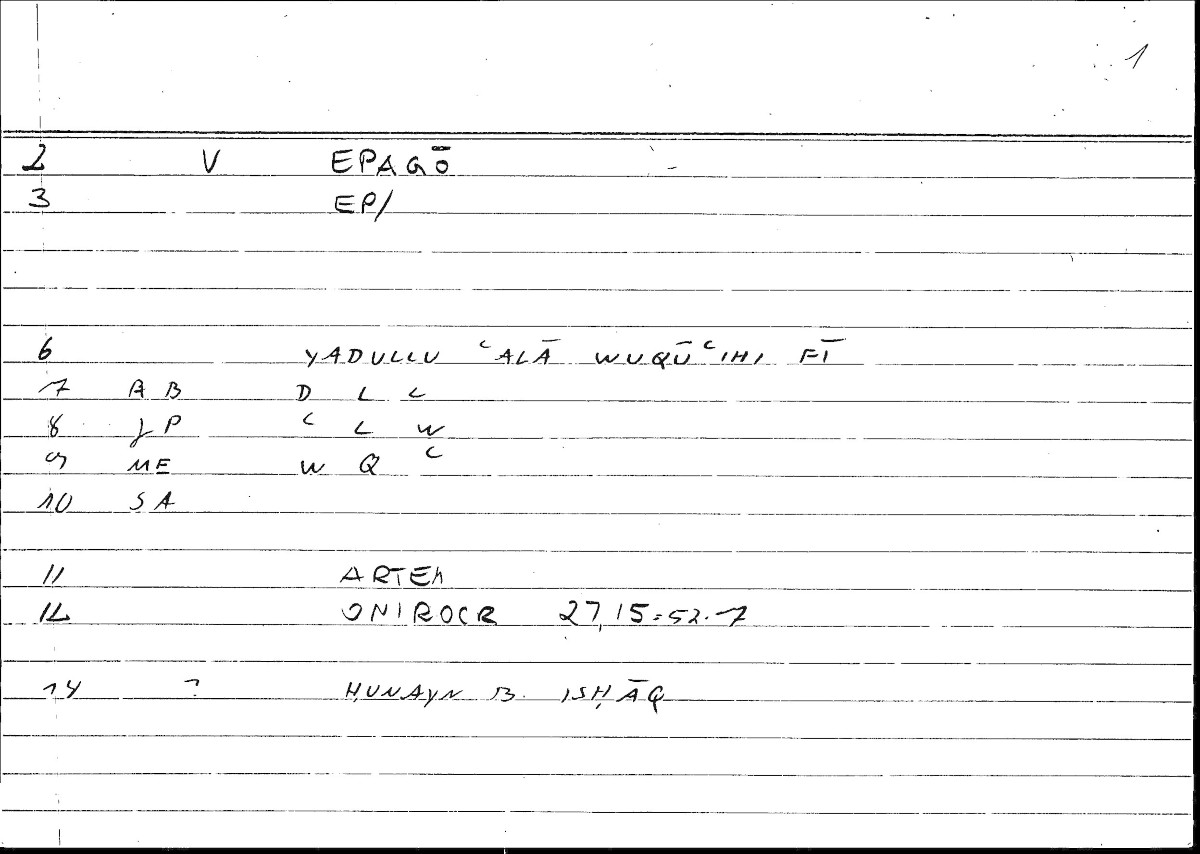 1
2 V EPAGŌ
3 EP/
6 YADULLU ʿALĀ WUQŪʿIHI FĪ
7 A B D L L
8 J P ʿ L W
9 ME W Q ʿ
10 S A
11 ARTEM
12 ONIROCR 27,15=52.7
14 ? ḤUNAYN B. ISḤĀQ